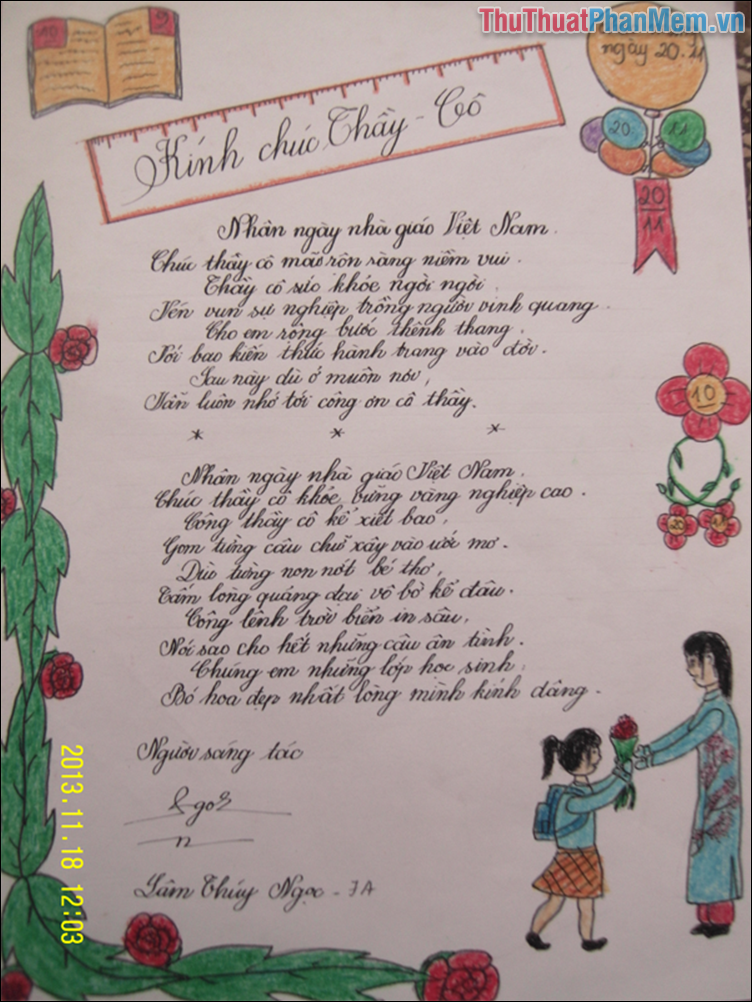 ThuThuatPhanMem.vn
10
9
ngày 20.11
20
11
20
11
Kính chúc Thầy - Cô
Nhân ngày nhà giáo Việt Nam.
Chúc thầy cô mãi rộn ràng niềm vui.
Thầy cô sức khỏe ngời ngời,
Vén vun sự nghiệp trồng người vinh quang.
Cho em rộng bước thênh thang,
Với bao kiến thức hành trang vào đời.
Sau này dù ở muôn nơi,
Vẫn luôn nhớ tới công ơn cô thầy.
* * *
Nhân ngày nhà giáo Việt Nam.
Chúc thầy cô khỏe vững vàng nghiệp cao.
Công thầy cô kể xiết bao,
Gom từng câu chữ xây vào ước mơ.
Dìu từng non nớt bé thơ,
Tấm lòng quảng đại vô bờ kể đâu.
Công lênh trời biển in sâu,
Nói sao cho hết những câu ân tình.
Chúng em những lớp học sinh,
Bó hoa đẹp nhất lòng mình kính dâng.
10
20
Người sáng tác
Lâm Thúy Ngọc -
2013.11.18 12:03